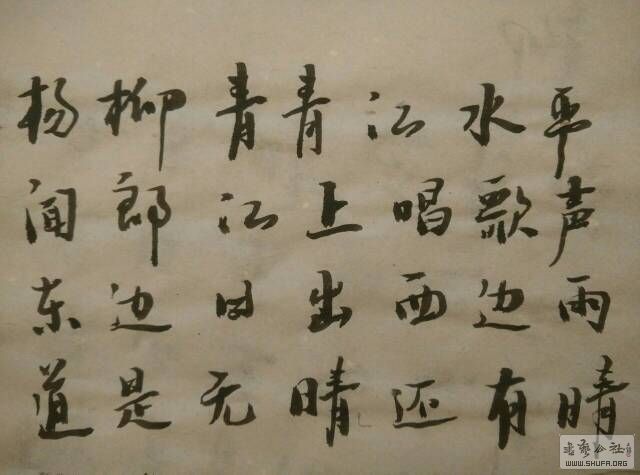 杨柳青青江水平
闻郎江上唱歌声
东边日出西边雨
道是无晴还有晴
书艺公社
WWW.SHUFA.ORG